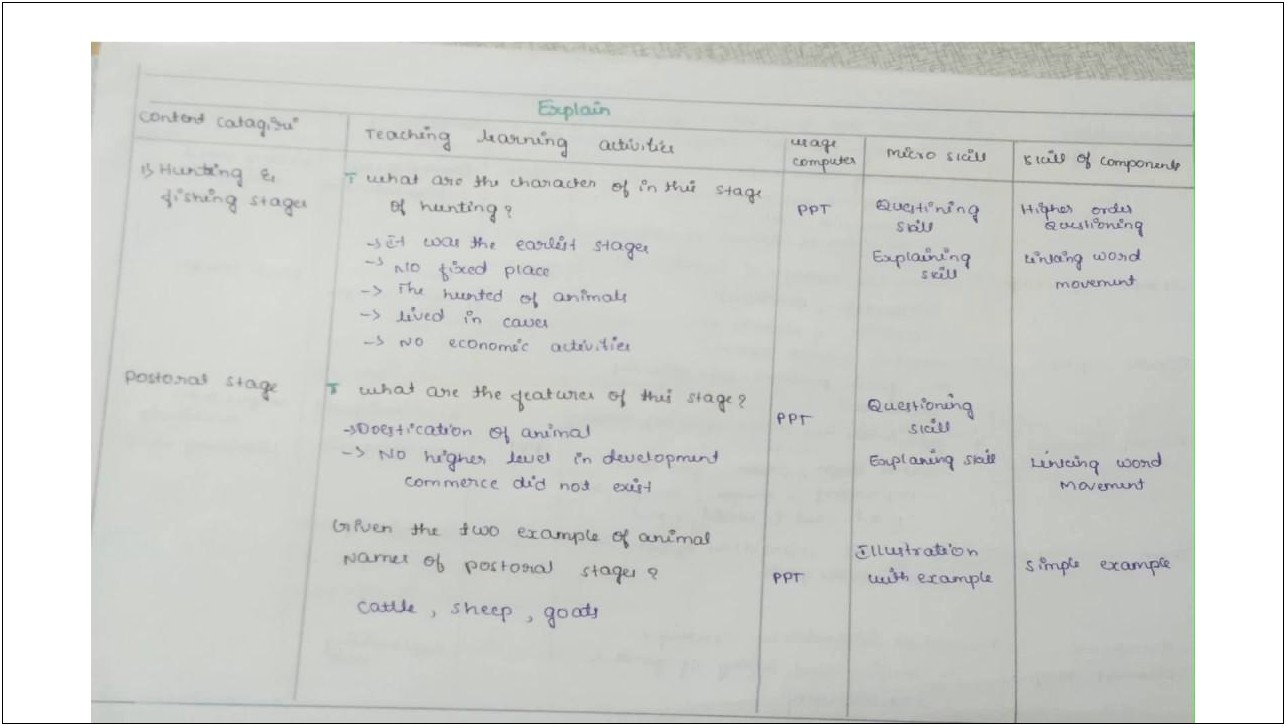 Explain
Content Catagiri
Teaching learning activities
usage
computer
Micro skill
skill of components
1) Hunting &
fishing stages
T what are the character of in this stage
of hunting?
PPT
Questioning
skill
Higher order
Questioning
→ It was the earliest stages
Explaining
skill
Linking word
movement
→ NO fixed place
→ The hunted of animals
→ lived in caves
→ NO economic activities
Postoral stage
T what are the features of this stage?
PPT
Questioning
skill
→ Doestication of animal
→ No higher level in development
commerce did not exist
Explaning skill
Linking word
Movement
Given the two example of animal
Names of postoral stages?
PPT
Illustration
with example
Simple example
cattle, sheep, goats